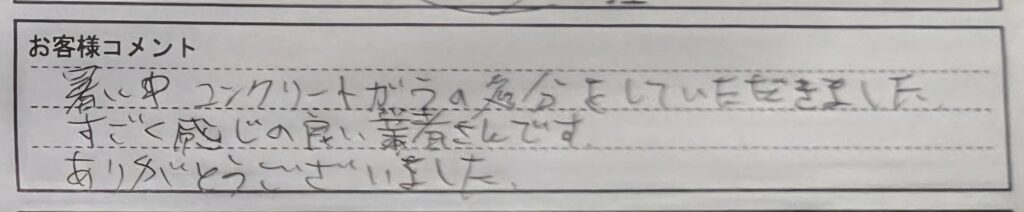 お客様コメント
暑い中 コンクリートがらの処分をしていただきました。
すごく感じの良い業者さんです。
ありがとうございました。